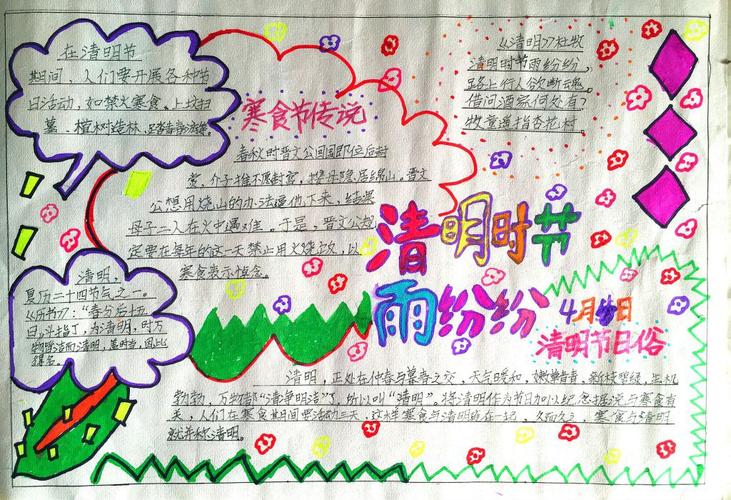 在清明节
期间，人们要开展各种节
日活动，如禁火寒食、上坟扫
墓、植树造林、踏青
寒食节传说
春秋时晋文公回国即位后封
赏，介子推不愿封赏，携母隐居绵山。晋文
公想用烧山的办法逼他下来，结果
母子二人在火中遇难。于是，晋文公规
定要在每年的这一天禁止用火烧饭，以
寒食表示悼念。
《清明》杜牧
清明时节雨纷纷，
路上行人欲断魂。
借问酒家何处有？
牧童遥指杏花村。
清明时节
雨纷纷
4月日
清明节日俗
清明，
夏历二十四节气之一。
《历书》："春分后十五
日，斗指丁，为清明，时万
物洁而清明，盖时当，因此
得名。
清明，正处在仲春与暮春之交，天气暖和，生机
勃勃，万物都"清净明洁"了，所以叫"清明"。将清明作为节日加以纪念据说与寒食有
关，人们在寒食其间要活动三天，这样寒食与清明就在一起，久而久之，寒食与清明
就并称清明。